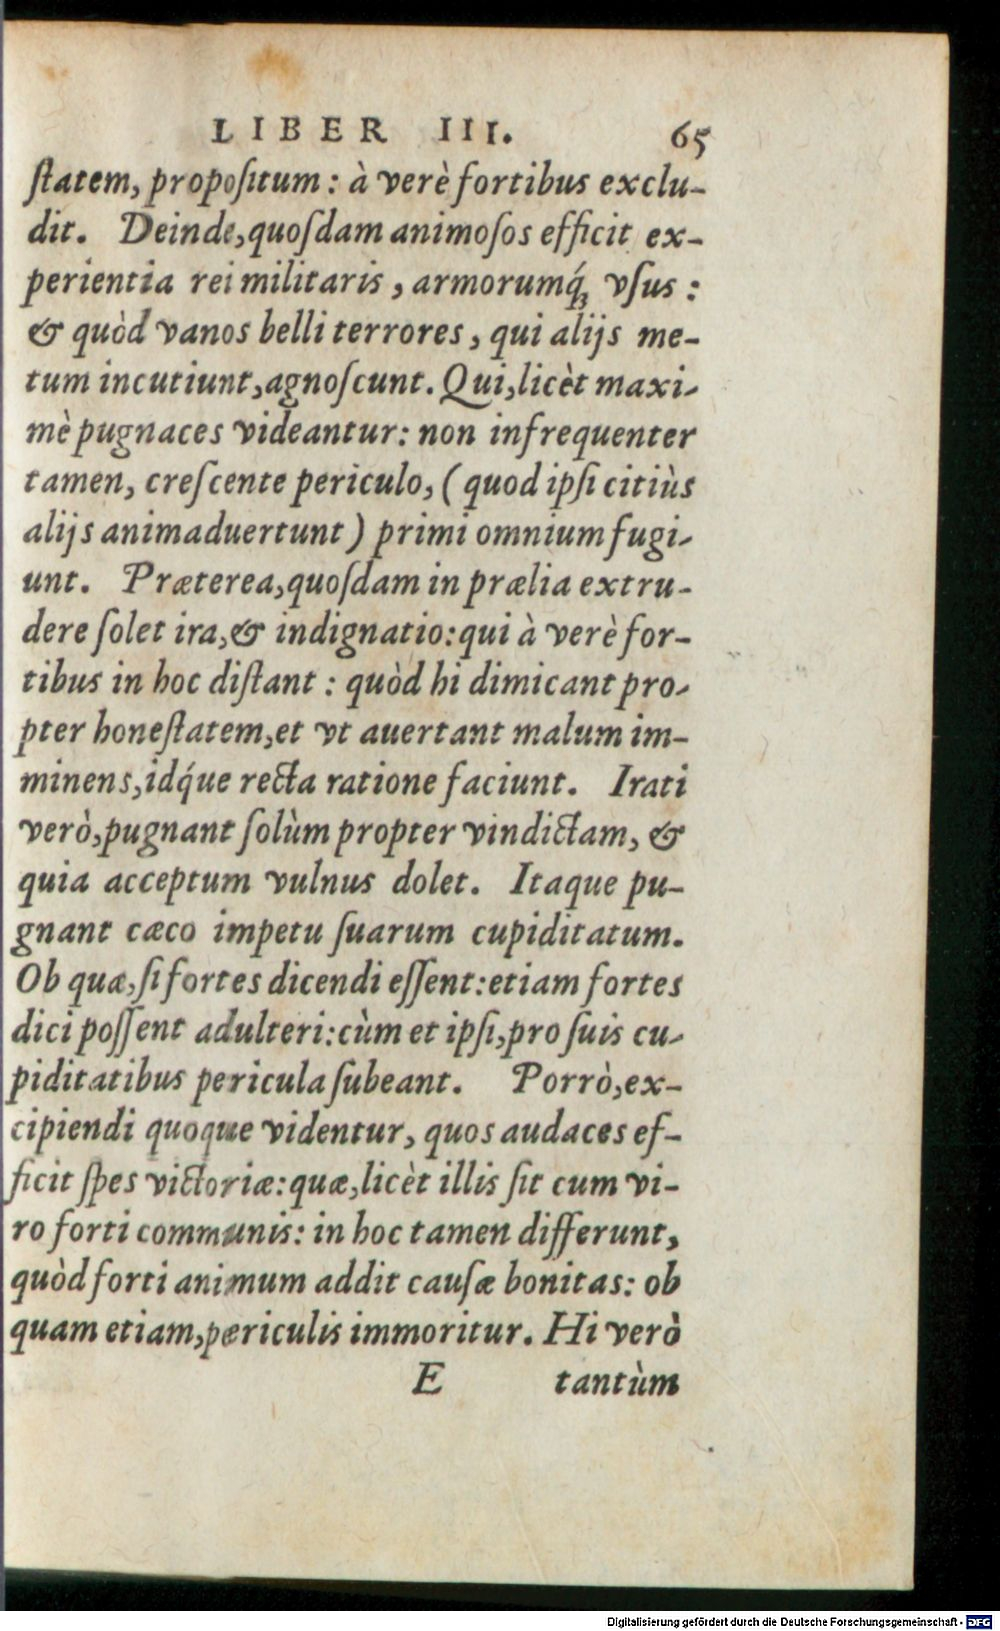 LIBER III. 65
ſtatem, propoſitum: à verè fortibus exclu-
dit. Deinde, quoſdam animoſos efficit ex-
perientia rei militaris, armorumq́ꝫ vſus:
& quòd vanos belli terrores, qui alijs me-
tum incutiunt, agnoſcunt. Qui, licèt maxi-
mè pugnaces videantur: non infrequenter
tamen, creſcente periculo, (quod ipſi citiùs
alijs animaduertunt) primi omnium fugi-
unt. Præterea, quoſdam in prælia extru-
dere ſolet ira, & indignatio: qui à verè for-
tibus in hoc diſtant: quòd hi dimicant pro-
pter honeſtatem, et vt auertant malum im-
minens, idq́ue recta ratione faciunt. Irati
verò, pugnant ſolùm propter vindictam, &
quia acceptum vulnus dolet. Itaque pu-
gnant cæco impetu ſuarum cupiditatum.
Ob quæ, ſi fortes dicendi eſſent: etiam fortes
dici poſſent adulteri: cùm et ipſi, pro ſuis cu-
piditatibus pericula ſubeant. Porrò, ex-
cipiendi quoque videntur, quos audaces ef-
ficit ſpes victoriæ: quæ, licèt illis ſit cum vi-
ro forti communis: in hoc tamen differunt,
quòd forti animum addit cauſæ bonitas: ob
quam etiam, periculis immoritur. Hi verò
E tantùm
Digitalisierung gefördert durch die Deutsche Forschungsgemeinschaft - DFG